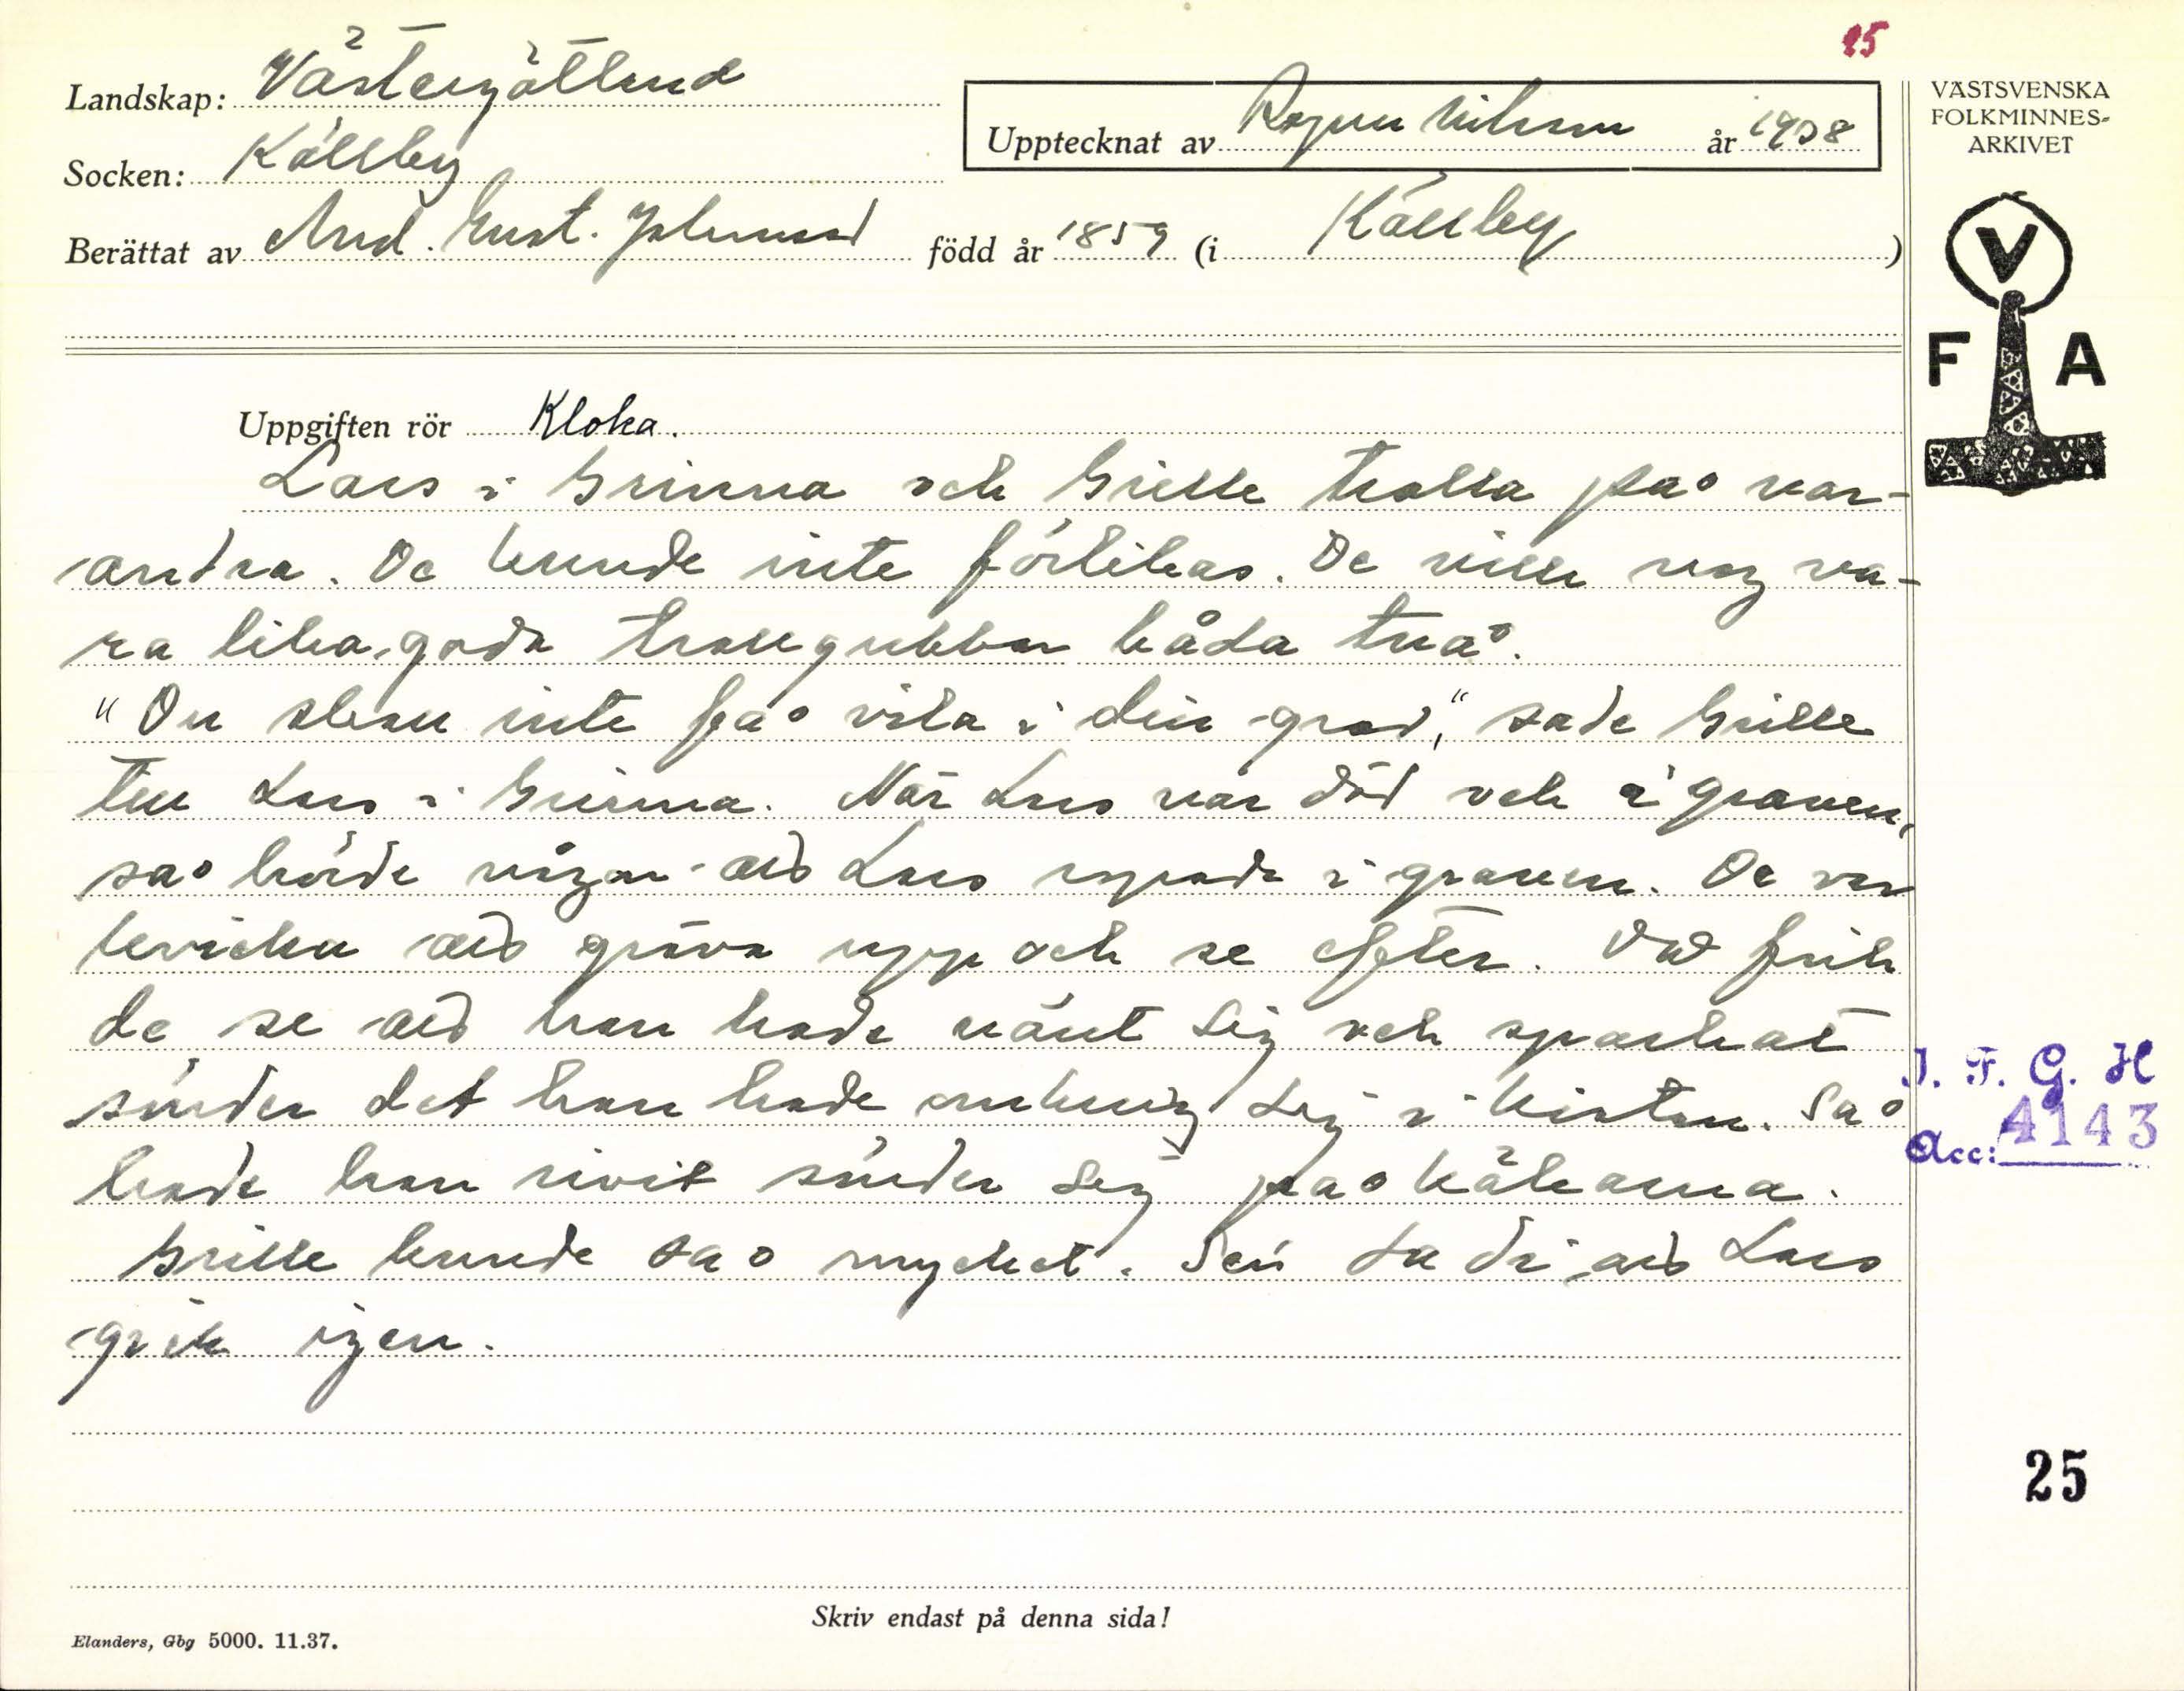 25
Landskap: Västergötland
Upptecknat av Ragnar Nilsson år 1938
Socken: Källby
Berättat av And. Gust. Johansson född år 1859 (i Källby)
VÄSTSVENSKA
FOLKMINNES-
ARKIVET
V
F A
Uppgiften rör Kloka.
Lars i Grinna och Grille trolla på var-
andra. De kunde inte förlikas. De ville nog va-
ra lika goda trollgubbar båda två.
"Du skall inte få vila i din grav," sade Grille
till Lars i Grinna. När Lars var död och i graven,
så hörde någon att Lars ropade i graven. De var
att gräva upp och se efter. Då fick
de se att han hade vänt sig och sparkat
sönder det han hade omkring sig i kistan. Så
hade han rivit sönder sig på kåkarna.
Grille kunde så mycket. Sen sa di att Lars
gick igen.
J. F. G. H
Acc: 4143
25
Skriv endast på denna sida!
Elanders, Gbg 5000. 11.37.